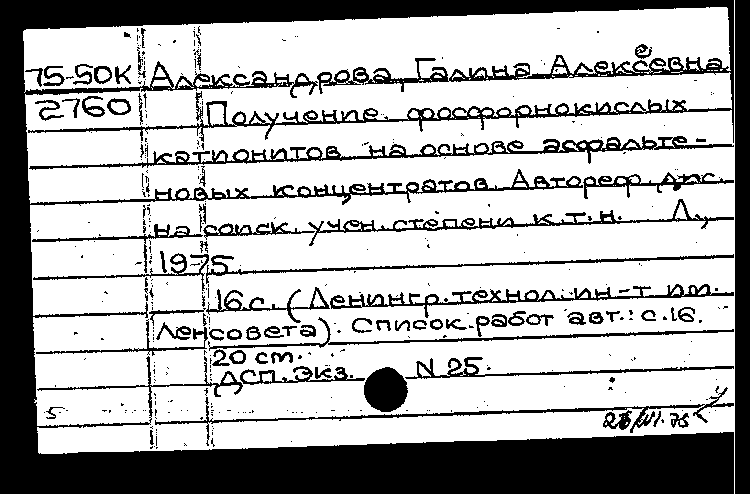 75-50К Александрова, Галина Алексеевна
2760 Получение фосфорнокислых
катионитов на основе асфальте-
новых концентратов. Автореф. дис.
на соиск. учен. степени к.т.н. Л.,
1975.
16 с. (Ленингр. технол. ин-т им.
Ленсовета). Список работ авт.: с. 16.
20 см.
ДСП. Экз. N 25.
5